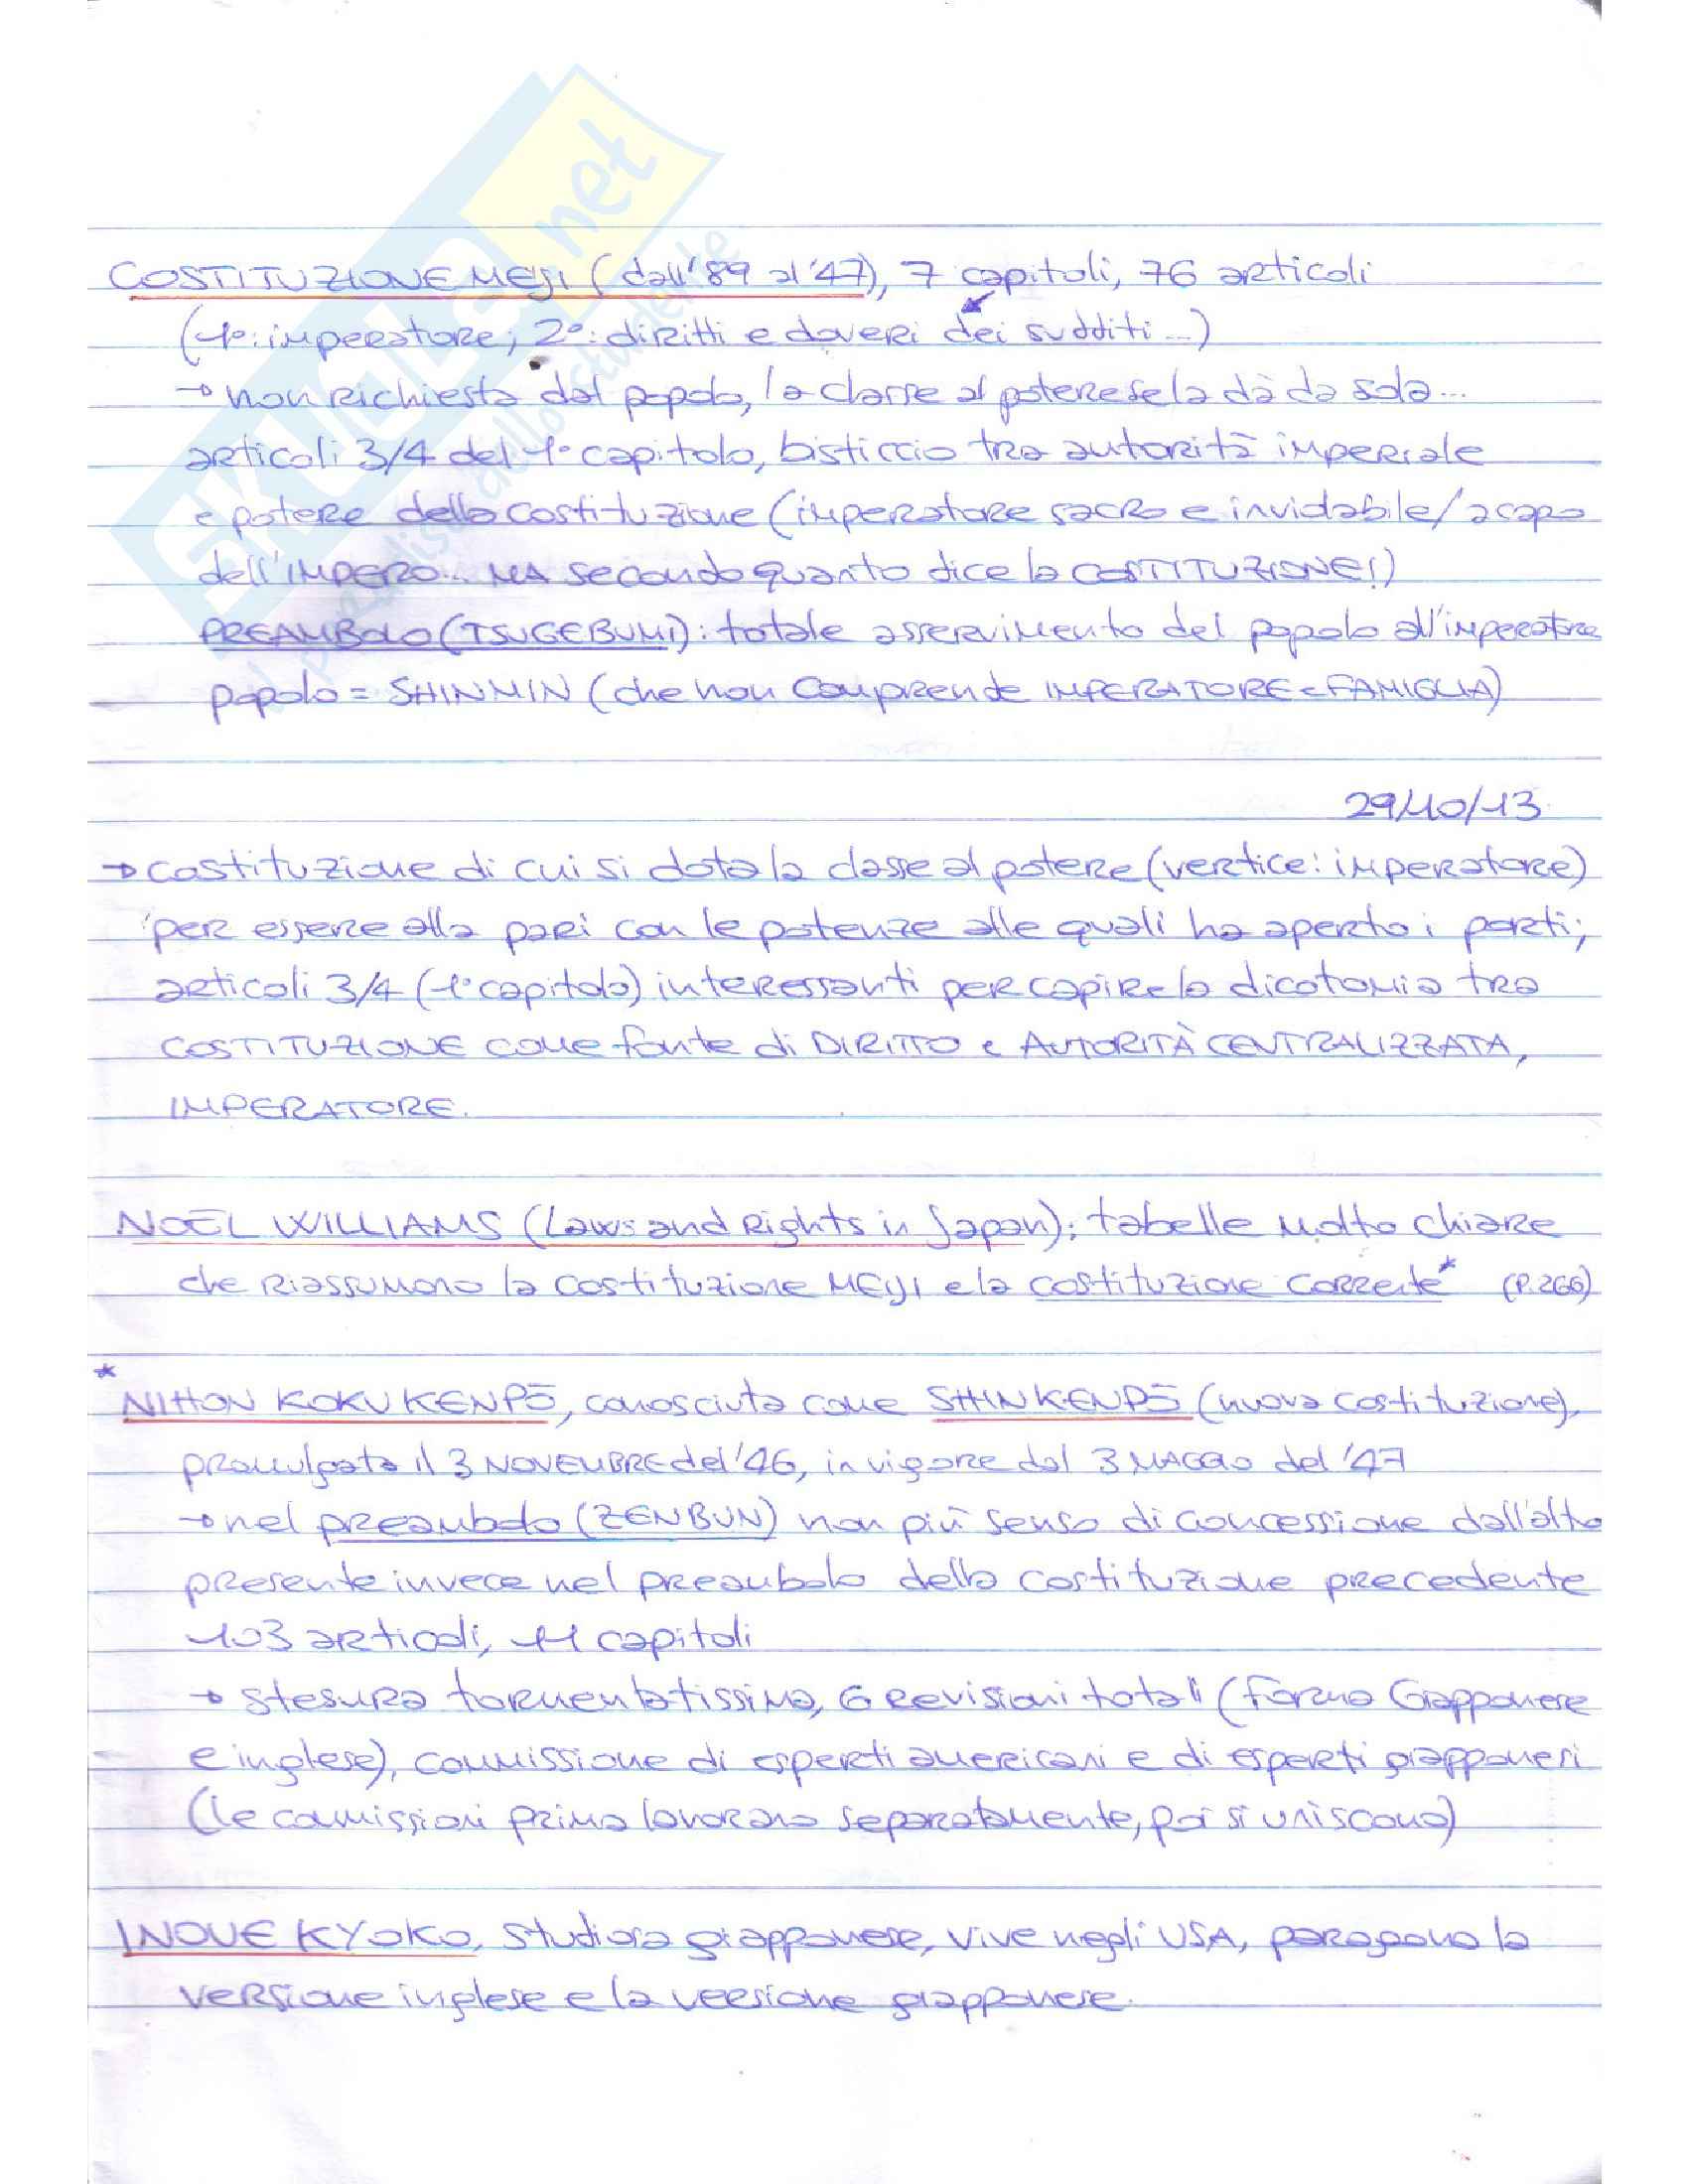 SKUOLA.net
il paradiso dello studente
COSTITUZIONE MEIJI (dall'89 al '47), 7 capitoli, 76 articoli
(1°: imperatore; 2°: diritti e doveri dei sudditi...)
→ non richiesta dal popolo, la classe al potere se la dà da sola...
articoli 3/4 del 1° capitolo, bisticcio tra autorità imperiale
e potere della costituzione (imperatore sacro e inviolabile/a capo
dell'IMPERO... MA secondo quanto dice la COSTITUZIONE!)
PREAMBOLO (TSUGEBUMI): totale asservimento del popolo all'imperatore
popolo = SHINMIN (che non comprende IMPERATORE e FAMIGLIA)
29/10/13
→ costituzione di cui si dota la classe al potere (vertice: imperatore)
per essere alla pari con le potenze alle quali ha aperto i porti;
articoli 3/4 (1° capitolo) interessanti per capire la dicotomia tra
COSTITUZIONE come fonte di DIRITTO e AUTORITÀ CENTRALIZZATA,
IMPERATORE.
NOËL WILLIAMS (Laws and Rights in Japan): tabelle molto chiare
che riassumono la costituzione MEIJI e la costituzione corrente* (P.266)
* NIHON KOKU KENPŌ, conosciuta come SHINKENPŌ (nuova costituzione),
promulgata il 3 NOVEMBRE del '46, in vigore dal 3 MAGGIO del '47
→ nel preambolo (ZENBUN) non più senso di concessione dall'alto
presente invece nel preambolo della costituzione precedente
103 articoli, 11 capitoli
→ stesura tormentatissima, 6 revisioni totali (forma Giapponese
e inglese), commissione di esperti americani e di esperti giapponesi
(le commissioni prima lavorano separatamente, poi si uniscono)
INOUE KYOKO, studiosa giapponese, vive negli USA, paragona la
versione inglese e la versione giapponese.